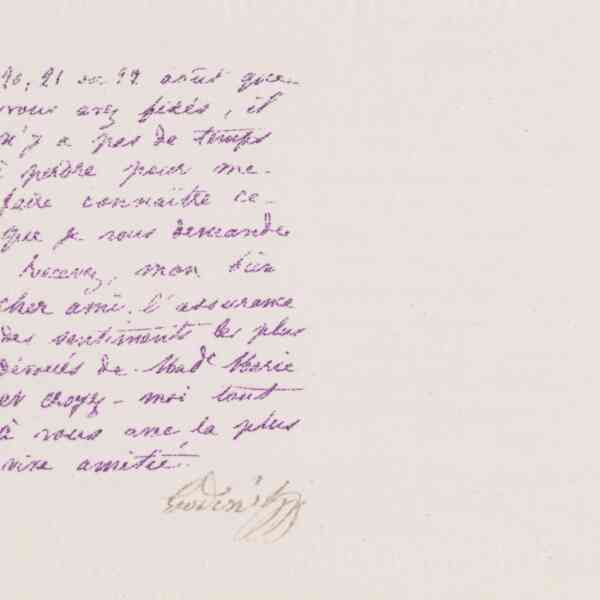 20, 21 ou 22 août que
vous avez fixés, il
n'y a pas de temps
à perdre pour me
faire connaître ce
que je vous demande
Recevez, mon bien
cher ami, l'assurance
des sentiments les plus
dévoués de Mad<sup>e</sup> Marie
et croyez-moi tout
à vous avec la plus
vive amitié.
Godin